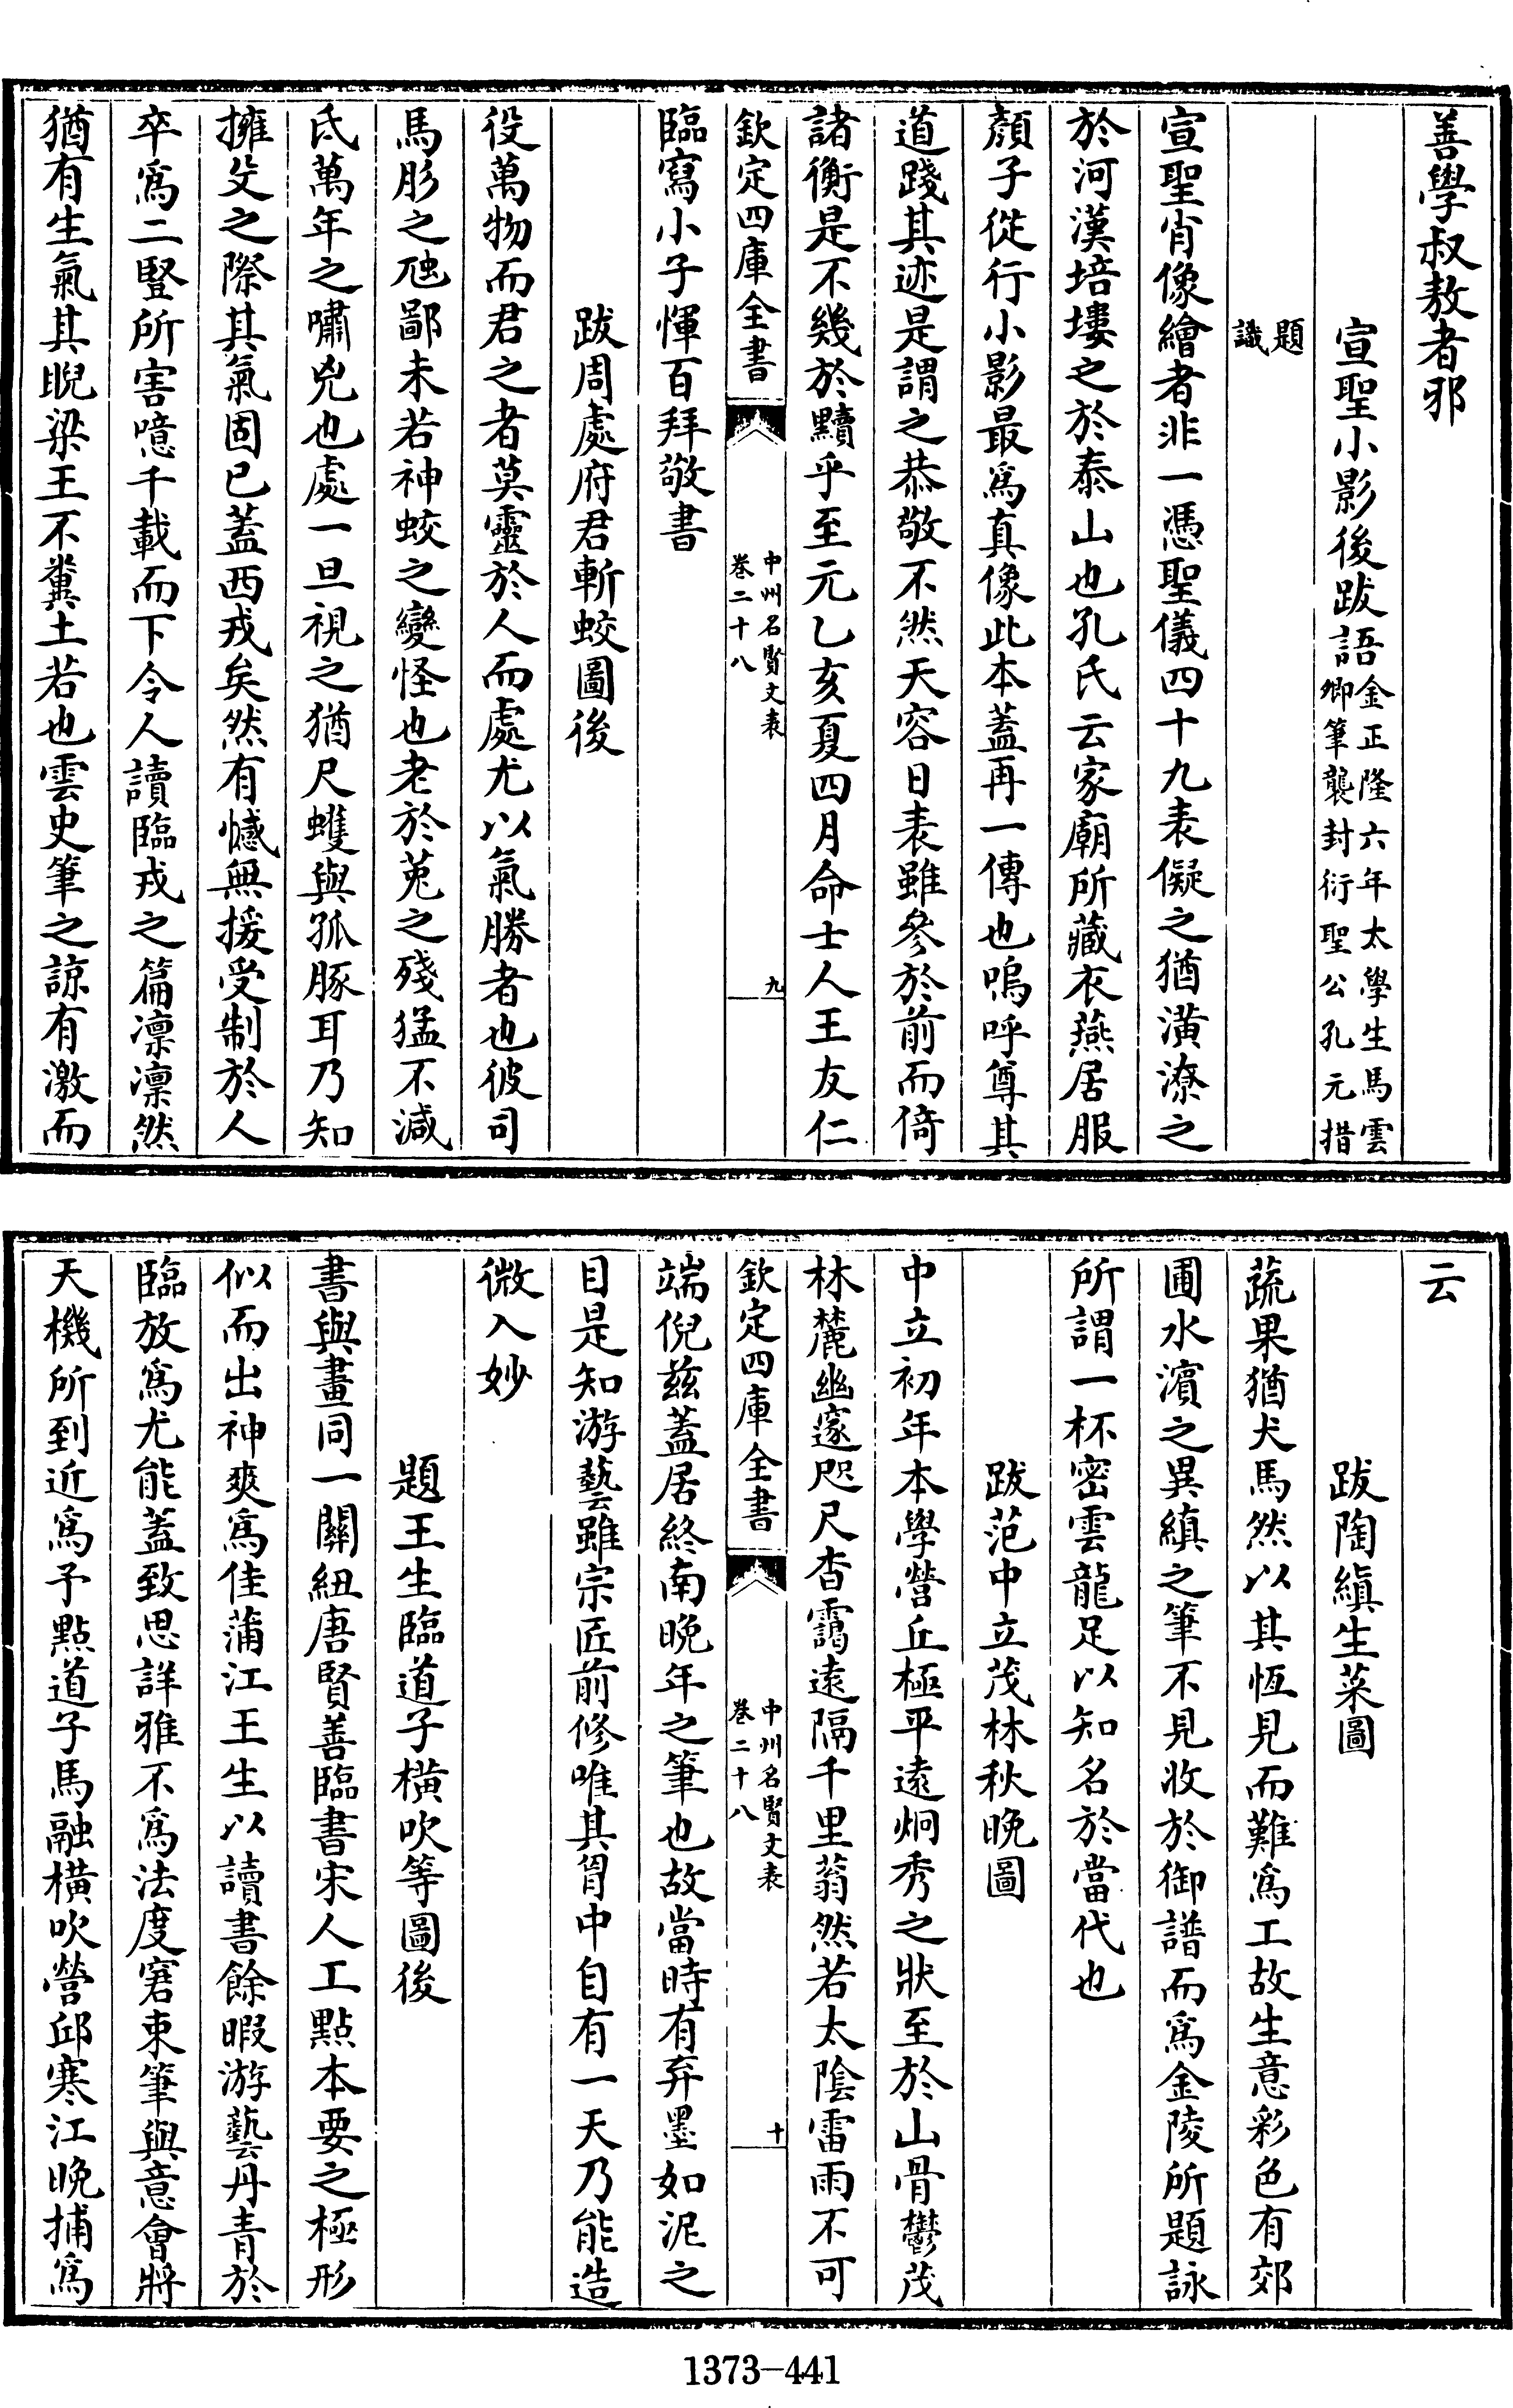 善學叔敖者邪
宣聖小影後跋語金正隆六年太學生馬雲卿筆襲封衍聖公孔元措
題識
宣聖肖像繪者非一憑聖儀四十九表儗之猶潢潦之
於河漢培塿之於泰山也孔氏云家廟所藏衣燕居服
顏子從行小影最爲真像此本蓋再一傳也嗚呼尊其
道踐其迹是謂之恭敬不然天容日表雖參於前而倚
諸衡是不幾於黷乎至元乙亥夏四月命士人王友仁
欽定四庫全書
中州名賢文表
卷二十八
九
臨寫小子惲百拜敬書
跋周處府君斬蛟圖後
役萬物而君之者莫靈於人而處尤以氣勝者也彼司
馬肜之虺鄙未若神蛟之變怪也老於菟之殘猛不減
氐萬年之嘯兇也處一旦視之猶尺蠖與孤豚耳乃知
擁殳之際其氣固已蓋西戎矣然有憾無援受制於人
卒爲二豎所害噫千載而下令人讀臨戎之篇凛凛然
猶有生氣其睨梁王不糞土若也雲史筆之諒有激而
云
跋陶縝生菜圖
蔬果猶犬馬然以其恆見而難爲工故生意彩色有郊
圃水濱之異縝之筆不見收於御譜而爲金陵所題詠
所謂一杯密雲龍足以知名於當代也
跋范中立茂林秋晚圖
中立初年本學營丘極平遠炯秀之狀至於山骨鬱茂
林麓幽邃咫尺杳靄遠隔千里蓊然若太陰雷雨不可
欽定四庫全書
中州名賢文表
卷二十八
十
端倪茲蓋居終南晚年之筆也故當時有弃墨如泥之
目是知游藝雖宗匠前修唯其胷中自有一天乃能造
微入妙
題王生臨道子橫吹等圖後
書與畫同一關紐唐賢善臨書宋人工點本要之極形
似而出神爽爲佳蒲江王生以讀書餘暇游藝丹青於
臨放爲尤能蓋致思詳雅不爲法度窘束筆與意會將
天機所到近爲予點道子馬融橫吹營邱寒江晚捕爲
1373-441